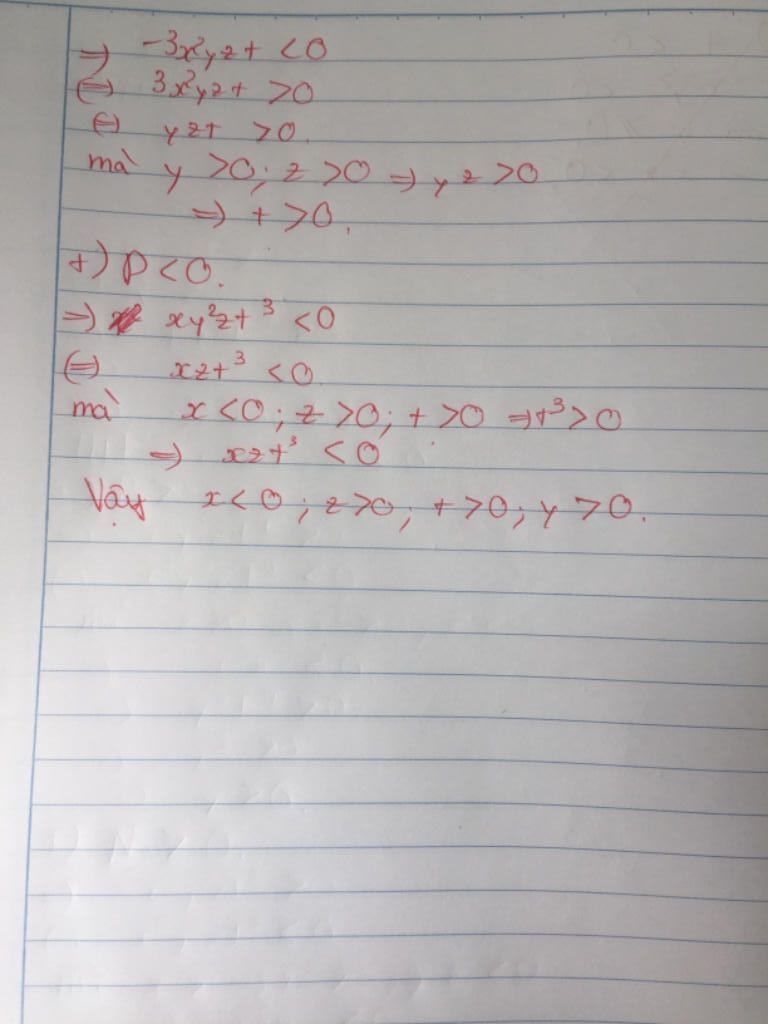 ⇒ -3x²yzt < 0
⇔ 3x²yzt > 0
⇔ yzt > 0.
mà y > 0; z > 0 ⇒ yz > 0
⇒ t > 0.
+) D < 0.
⇒ xy²zt³ < 0
⇔ xzt³ < 0
mà x < 0; z > 0; t > 0 ⇒ t³ > 0
⇒ xzt³ < 0
Vậy x < 0; z > 0; t > 0; y > 0.